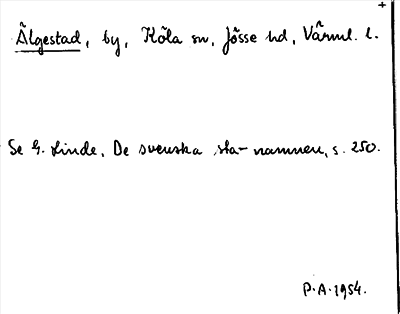 +
Älgestad, by, Köla sn, Jösse hd, Värml. l.
Se G. Linde, De svenska sta-namnen, s. 250.
P.A. 1954.